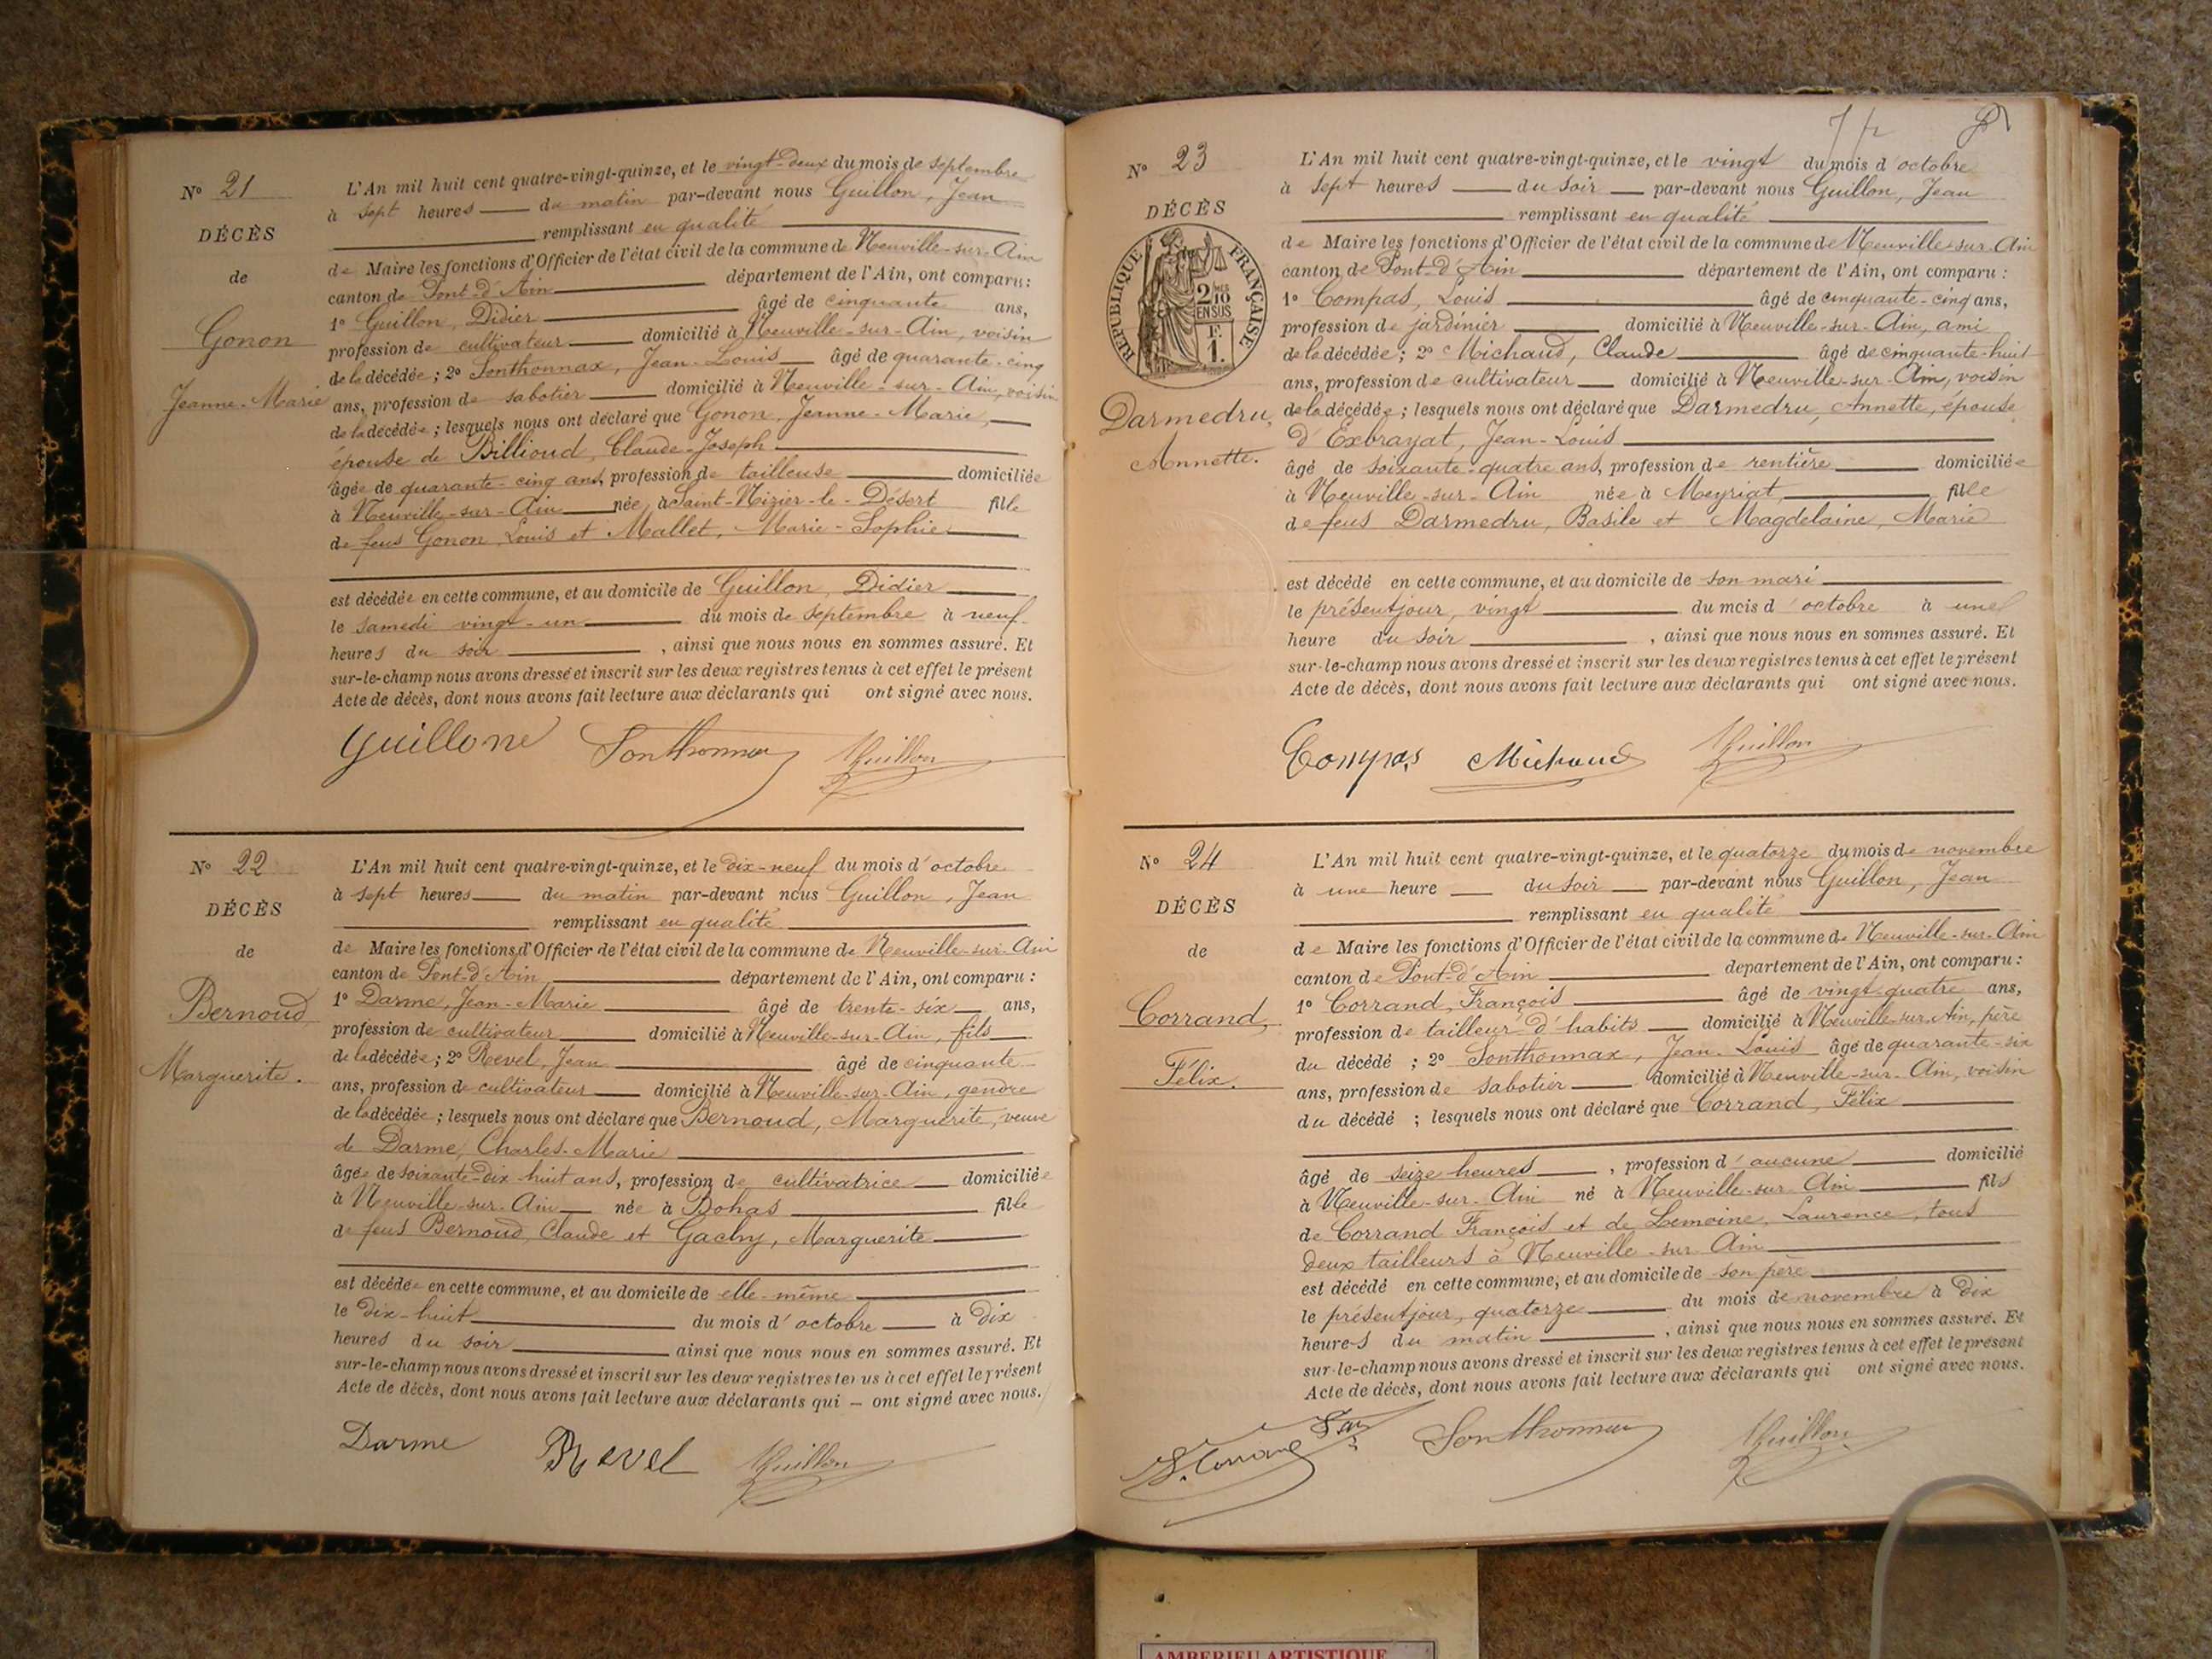 N° 21
DÉCÈS
de
Gonon
Jeanne-Marie
L'An mil huit cent quatre-vingt-quinze, et le vingt-deux du mois de septembre
à sept heures du matin par-devant nous Guillon, Jean
remplissant en qualité
de Maire les fonctions d'Officier de l'état civil de la commune de Neuville-sur-Ain
canton de Pont-d'Ain département de l'Ain, ont comparu :
1° Guillon, Didier âgé de cinquante ans,
profession de cultivateur domicilié à Neuville-sur-Ain, voisin
de la décédée ; 2° Sonthonnax, Jean-Louis âgé de quarante-cinq
ans, profession de sabotier domicilié à Neuville-sur-Ain, voisin
de la décédée ; lesquels nous ont déclaré que Gonon, Jeanne-Marie,
épouse de Billioud, Claude-Joseph
âgée de quarante-cinq ans, profession de tailleuse domiciliée
à Neuville-sur-Ain née à Saint-Nizier-le-Désert fille
de feus Gonon, Louis et Mallet, Marie-Sophie
est décédée en cette commune, et au domicile de Guillon, Didier
le samedi vingt-un du mois de septembre à neuf
heures du soir , ainsi que nous nous en sommes assuré. Et
sur-le-champ nous avons dressé et inscrit sur les deux registres tenus à cet effet le présent
Acte de décès, dont nous avons fait lecture aux déclarants qui ont signé avec nous.
Guillone Sonthonnax Guillon
N° 22
DÉCÈS
de
Bernoud
Marguerite.
L'An mil huit cent quatre-vingt-quinze, et le dix-neuf du mois d'octobre
à sept heures du matin par-devant nous Guillon, Jean
remplissant en qualité
de Maire les fonctions d'Officier de l'état civil de la commune de Neuville-sur-Ain
canton de Pont-d'Ain département de l'Ain, ont comparu :
1° Darme, Jean-Marie âgé de trente-six ans,
profession de cultivateur domicilié à Neuville-sur-Ain, fils
de la décédée ; 2° Revel, Jean âgé de cinquante
ans, profession de cultivateur domicilié à Neuville-sur-Ain, gendre
de la décédée ; lesquels nous ont déclaré que Bernoud, Marguerite, veuve
de Darme, Charles-Marie
âgée de soixante-dix-huit ans, profession de cultivatrice domiciliée
à Neuville-sur-Ain née à Bohas fille
de feus Bernoud, Claude et Gachy, Marguerite
est décédée en cette commune, et au domicile de elle-même
le dix-huit du mois d'octobre à dix
heures du soir ainsi que nous nous en sommes assuré. Et
sur-le-champ nous avons dressé et inscrit sur les deux registres tenus à cet effet le présent
Acte de décès, dont nous avons fait lecture aux déclarants qui — ont signé avec nous.
Darme Revel Guillon
N° 23
DÉCÈS
RÉPUBLIQUE FRANÇAISE
2/10
EN SUS
F.
1.
Darmedru,
Annette.
L'An mil huit cent quatre-vingt-quinze, et le vingt du mois d'octobre
à sept heures du soir par-devant nous Guillon, Jean
remplissant en qualité
de Maire les fonctions d'Officier de l'état civil de la commune de Neuville-sur-Ain
canton de Pont-d'Ain département de l'Ain, ont comparu :
1° Compas, Louis âgé de cinquante-cinq ans,
profession de jardinier domicilié à Neuville-sur-Ain, ami
de la décédée ; 2° Michaud, Claude âgé de cinquante-huit
ans, profession de cultivateur domicilié à Neuville-sur-Ain, voisin
de la décédée ; lesquels nous ont déclaré que Darmedru, Annette, épouse
d'Exbrayat, Jean-Louis
âgé de soixante-quatre ans, profession de rentière domiciliée
à Neuville-sur-Ain née à Meyriat, fille
de feus Darmedru, Basile et Magdelaine, Marie
est décédé en cette commune, et au domicile de son mari
le présent jour, vingt du mois d'octobre à une
heure du soir , ainsi que nous nous en sommes assuré. Et
sur-le-champ nous avons dressé et inscrit sur les deux registres tenus à cet effet le présent
Acte de décès, dont nous avons fait lecture aux déclarants qui ont signé avec nous.
Compas Michaud Guillon
N° 24
DÉCÈS
de
Corrand,
Félix.
L'An mil huit cent quatre-vingt-quinze, et le quatorze du mois de novembre
à une heure du soir par-devant nous Guillon, Jean
remplissant en qualité
de Maire les fonctions d'Officier de l'état civil de la commune de Neuville-sur-Ain
canton de Pont-d'Ain departement de l'Ain, ont comparu :
1° Corrand, François âgé de vingt-quatre ans,
profession de tailleur d'habits domicilié à Neuville-sur-Ain, père
du décédé ; 2° Sonthonnax, Jean-Louis âgé de quarante-six
ans, profession de sabotier domicilié à Neuville-sur-Ain, voisin
du décédé ; lesquels nous ont déclaré que Corrand, Félix
âgé de seize heures , profession d'aucune domicilié
à Neuville-sur-Ain né à Neuville-sur-Ain fils
de Corrand François et de Lemoine, Laurence, tous
deux tailleurs à Neuville-sur-Ain
est décédé en cette commune, et au domicile de son père
le présent jour, quatorze du mois de novembre à dix
heures du matin , ainsi que nous nous en sommes assuré. Et
sur-le-champ nous avons dressé et inscrit sur les deux registres tenus à cet effet le présent
Acte de décès, dont nous avons fait lecture aux déclarants qui ont signé avec nous.
Corrand Sonthonnax Guillon
AMBERIEU ARTISTIQUE